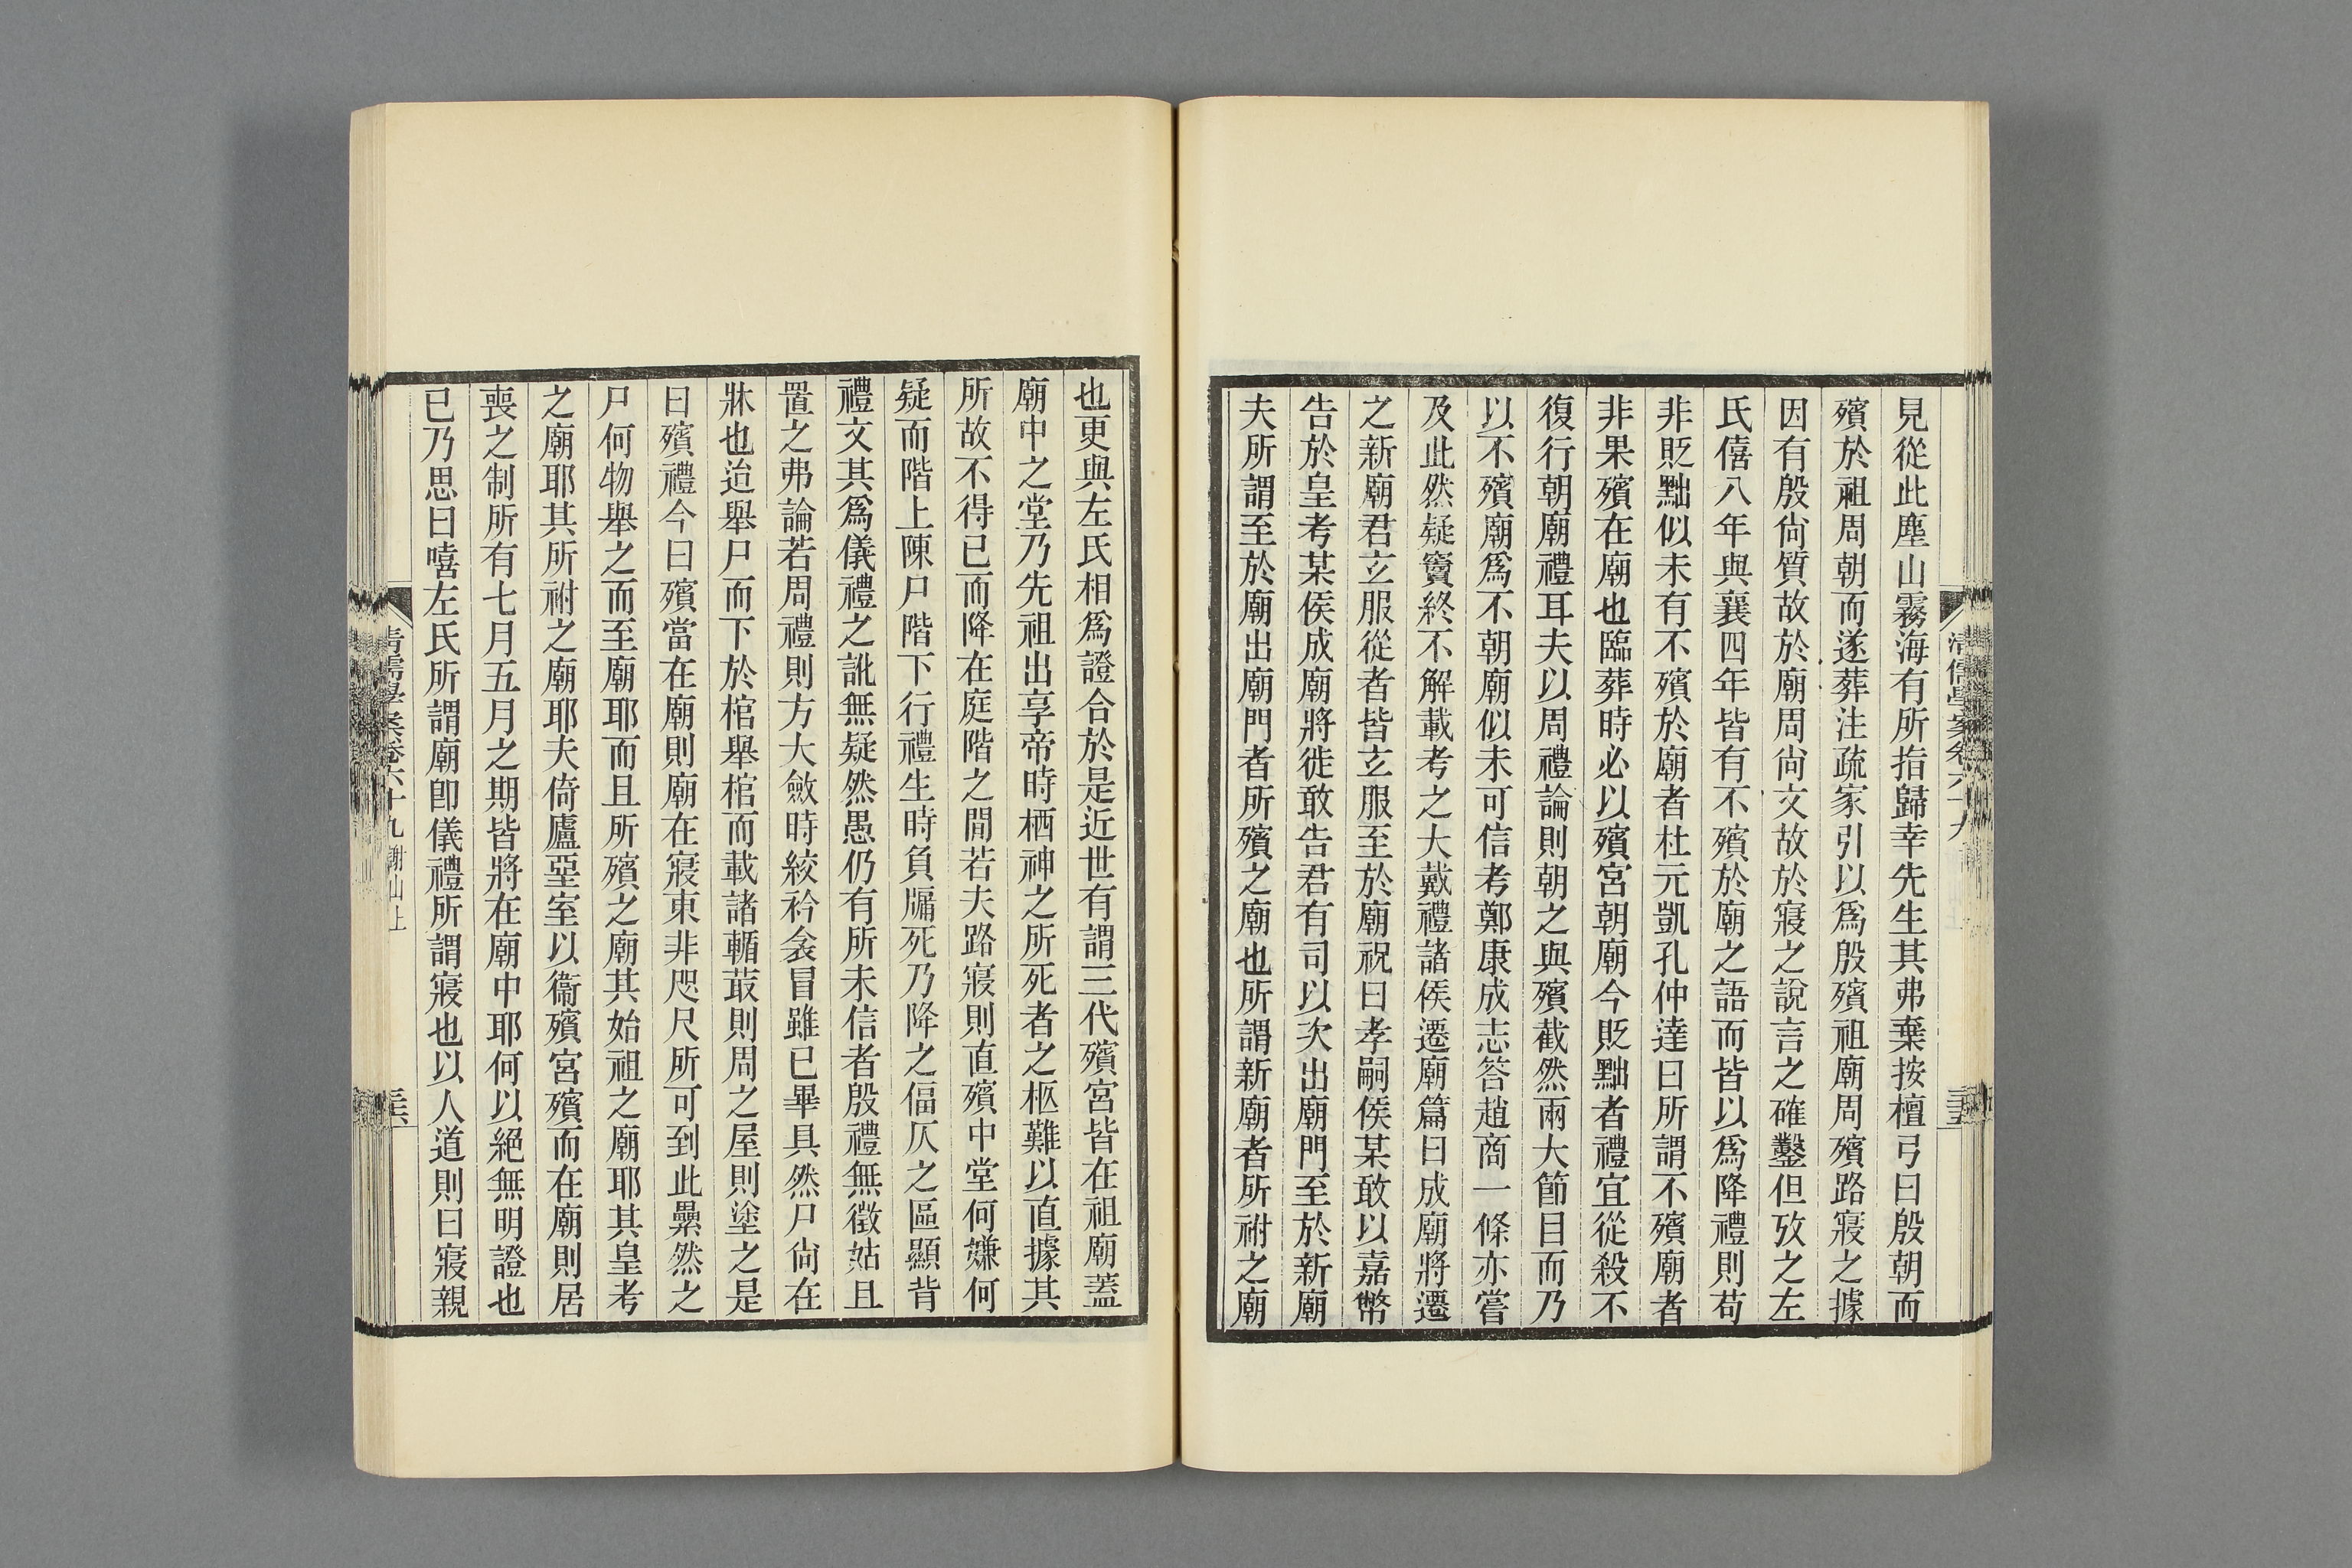 見從此塵山霧海有所指歸幸先生其弗棄按檀弓曰殷朝而
殯於祖周朝而遂葬注疏家引以爲殷殯祖廟周殯路寢之據
因有殷尙質故於廟周尙文故於寢之說言之確鑿但攷之左
氏僖八年與襄四年皆有不殯於廟之語而皆以爲降禮則苟
非貶黜似未有不殯於廟者杜元凱孔仲達曰所謂不殯廟者
非果殯在廟也臨葬時必以殯宮朝廟今貶黜者禮宜從殺不
復行朝廟禮耳夫以周禮論則朝之與殯截然兩大節目而乃
以不殯廟爲不朝廟似未可信考鄭康成志答趙商一條亦嘗
及此然疑竇終不解載考之大戴禮諸侯遷廟篇曰成廟將遷
之新廟君玄服從者皆玄服至於廟祝曰孝嗣侯某敢以嘉幣
告於皇考某侯成廟將徙敢告君有司以次出廟門至於新廟
夫所謂至於廟出廟門者所殯之廟也所謂新廟者所祔之廟
清儒學案卷六十九
三十五
也更與左氏相爲證合於是近世有謂三代殯宮皆在祖廟蓋
廟中之堂乃先祖出享帝時栖神之所死者之柩難以直據其
所故不得已而降在庭階之間若夫路寢則直殯中堂何嫌何
疑而階上陳尸階下行禮生時負牖死乃降之偪仄之區顯背
禮文其爲儀禮之訛無疑然愚仍有所未信者殷禮無徵姑且
置之弗論若周禮則方大斂時絞衿衾冒雖已畢具然尸尙在
牀也迨舉尸而下於棺舉棺而載諸輴菆則周之屋則塗之是
曰殯禮今曰殯當在廟則廟在寢東非咫尺所可到此纍然之
尸何物舉之而至廟耶而且所殯之廟其始祖之廟耶其皇考
之廟耶其所祔之廟耶夫倚廬堊室以衞殯宮殯而在廟則居
喪之制所有七月五月之期皆將在廟中耶何以絕無明證也
已乃思曰嘻左氏所謂廟卽儀禮所謂寢也以人道則曰寢親
清儒學案卷六十九 謝山上
三十六